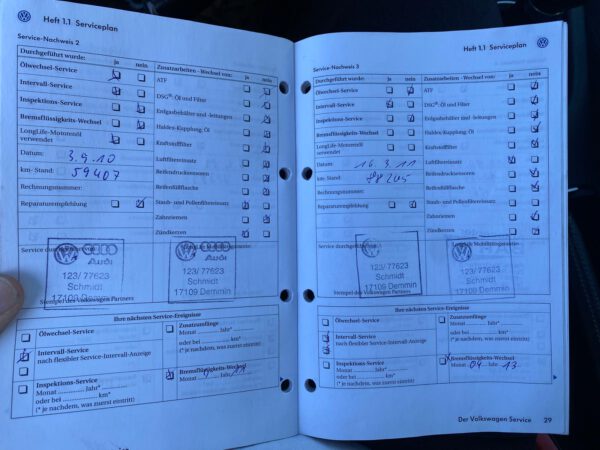 Heft 1.1 Serviceplan
Service-Nachweis 2
Durchgeführt wurde: ja nein
Ölwechsel-Service
Intervall-Service
Inspektions-Service
Bremsflüssigkeits-Wechsel
LongLife-Motorenöl
verwendet
Datum: 3.9.10
km- Stand: 59407
Rechnungsnummer:
Reparaturempfehlung
Zusatzarbeiten - Wechsel von: ja nein
ATF
DSG®-Öl und Filter
Erdgasbehälter und -leitungen
Haldex-Kupplung, Öl
Kraftstofffilter
Luftfiltereinsatz
Reifendrucksensoren
Reifenfüllflasche
Staub- und Pollenfiltereinsatz
Zahnriemen
Zündkerzen
Service durchgeführt von:
Audi
123/ 77623
Schmidt
17109 Demmin
Stempel des Volkswagen Partners
Audi
123/ 77623
Schmidt
17109 Demmin
Ihre nächsten Service-Ereignisse
Ölwechsel-Service
Intervall-Service
nach flexibler Service-Intervall-Anzeige
Inspektions-Service
Monat ............ Jahr*
oder bei .................. km*
(* je nachdem, was zuerst eintritt)
Zusatzumfänge
Monat ............ Jahr*
oder bei .................. km*
(* je nachdem, was zuerst eintritt)
Bremsflüssigkeits-Wechsel
Heft 1.1 Serviceplan
Service-Nachweis 3
Durchgeführt wurde: ja nein
Ölwechsel-Service
Intervall-Service
Inspektions-Service
Bremsflüssigkeits-Wechsel
LongLife-Motorenöl
verwendet
Datum: 16.3.11
km- Stand: 88205
Rechnungsnummer:
Reparaturempfehlung
Zusatzarbeiten - Wechsel von: ja nein
ATF
DSG®-Öl und Filter
Erdgasbehälter und -leitungen
Haldex-Kupplung, Öl
Kraftstofffilter
Luftfiltereinsatz
Reifendrucksensoren
Reifenfüllflasche
Staub- und Pollenfiltereinsatz
Zahnriemen
Zündkerzen
Service durchgeführt von:
LongLife Mobilitätsgarantie
123/ 77623
Schmidt
17109 Demmin
Stempel des Volkswagen Partners
123/ 77623
Schmidt
17109 Demmin
Ihre nächsten Service-Ereignisse
Ölwechsel-Service
Intervall-Service
nach flexibler Service-Intervall-Anzeige
Inspektions-Service
Monat ............ Jahr*
oder bei .................. km*
(* je nachdem, was zuerst eintritt)
Zusatzumfänge
Monat ............ Jahr*
oder bei .................. km*
(* je nachdem, was zuerst eintritt)
Bremsflüssigkeits-Wechsel
Monat 04 Jahr 13
Der Volkswagen Service 29